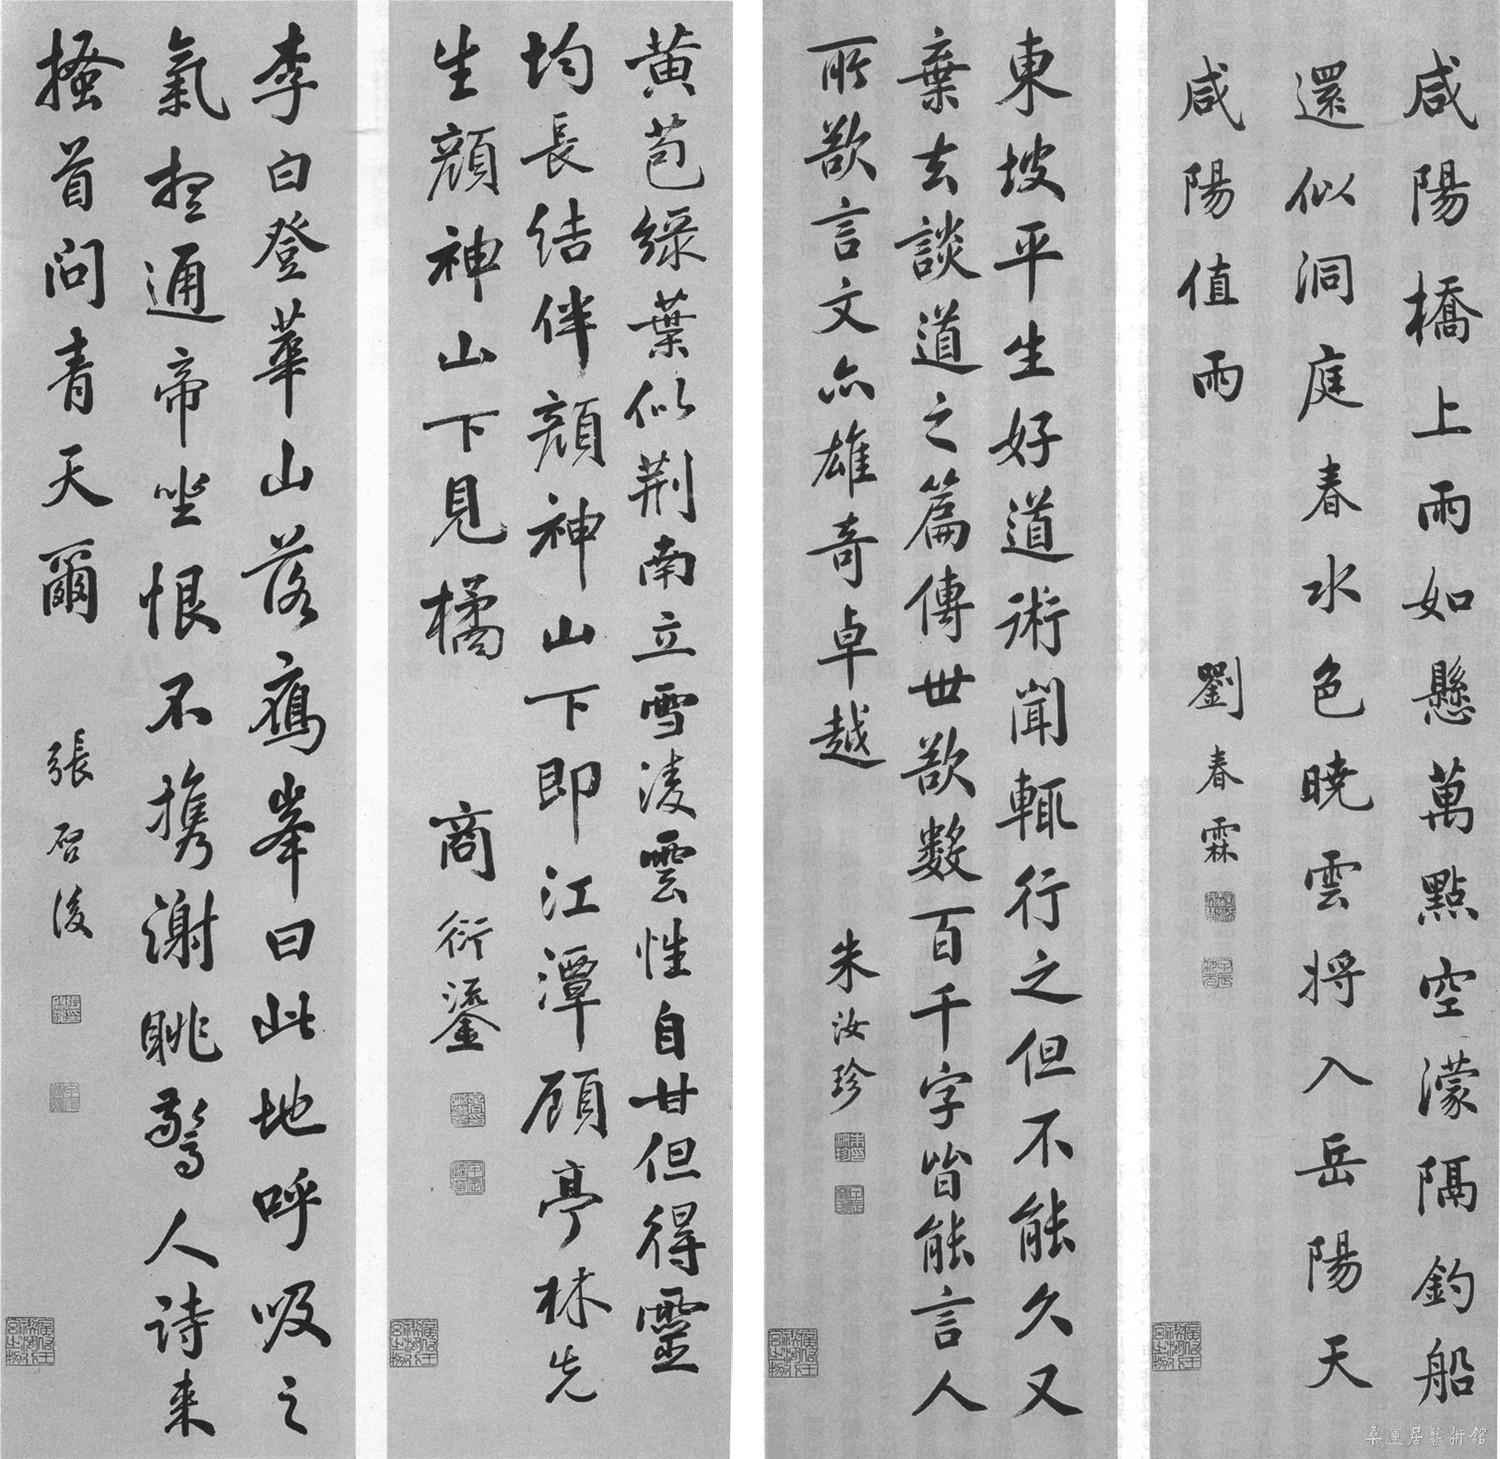 咸陽橋上雨如懸萬點空濛隔釣船
還似洞庭春水色曉雲將入岳陽天
咸陽值雨
劉春霖
東坡平生好道術聞輒行之但不能久又
棄去談道之篇傳世欲數百千字皆能言人
所欲言文亦雄奇卓越
朱汝珍
黃苞綠葉似荆南立雪淩雲性自甘但得靈
均長結伴顏神山下即江潭顧亭林先
生顏神山下見橘
商衍鎏
李白登華山落鴈峯曰此地呼吸之
氣想通帝坐恨不攜謝眺驚人詩来
搔首問青天爾
張啓後
桑蓮居藝術館